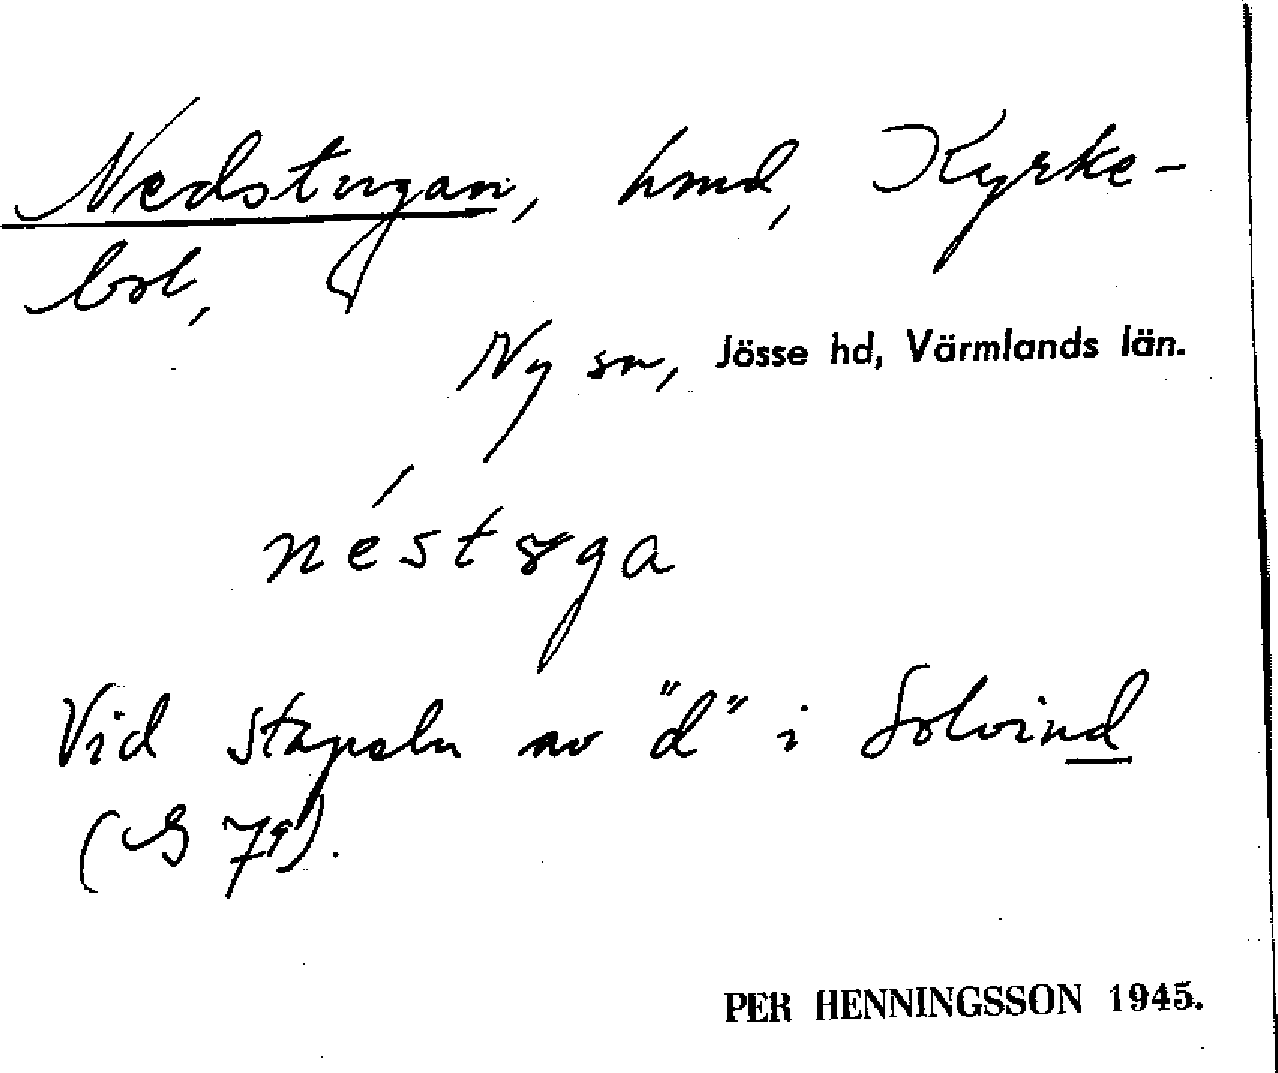 Nedstugan, hmd, Kyrke-
bol,
Ny sn, Jösse hd, Värmlands län.
néstɤga
Vid stapeln av "d" i Solvind
(G 79).
PER HENNINGSSON 1945.